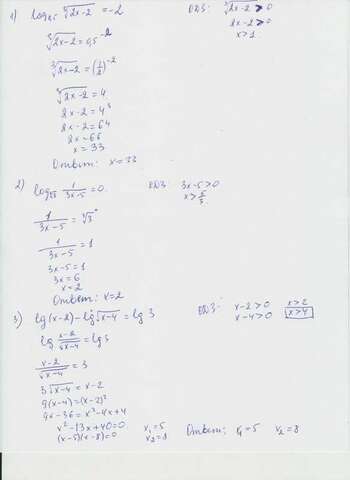 1) log₀,₅ ∛(2x-2) = -2    ОДЗ: ∛(2x-2) > 0
∛(2x-2) = 0,5⁻²    2x-2 > 0
x > 1
∛(2x-2) = (1/2)⁻²
∛(2x-2) = 4
2x-2 = 4³
2x-2 = 64
2x = 66
x = 33
Ответ: x = 33
2) log√3 1/(3x-5) = 0.    ОДЗ: 3x-5 > 0
x > 5/3
1/(3x-5) = √3⁰
1/(3x-5) = 1
3x-5 = 1
3x = 6
x = 2
Ответ: x = 2
3) lg(x-2) - lg√(x-4) = lg 3    ОДЗ: x-2 > 0    x > 2
x-4 > 0    x > 4
lg (x-2)/√(x-4) = lg 3
(x-2)/√(x-4) = 3
3√(x-4) = x-2
9(x-4) = (x-2)²
9x-36 = x²-4x+4
x²-13x+40=0    x₁=5    Ответ: x₁=5    x₂=8
(x-5)(x-8)=0    x₂=8